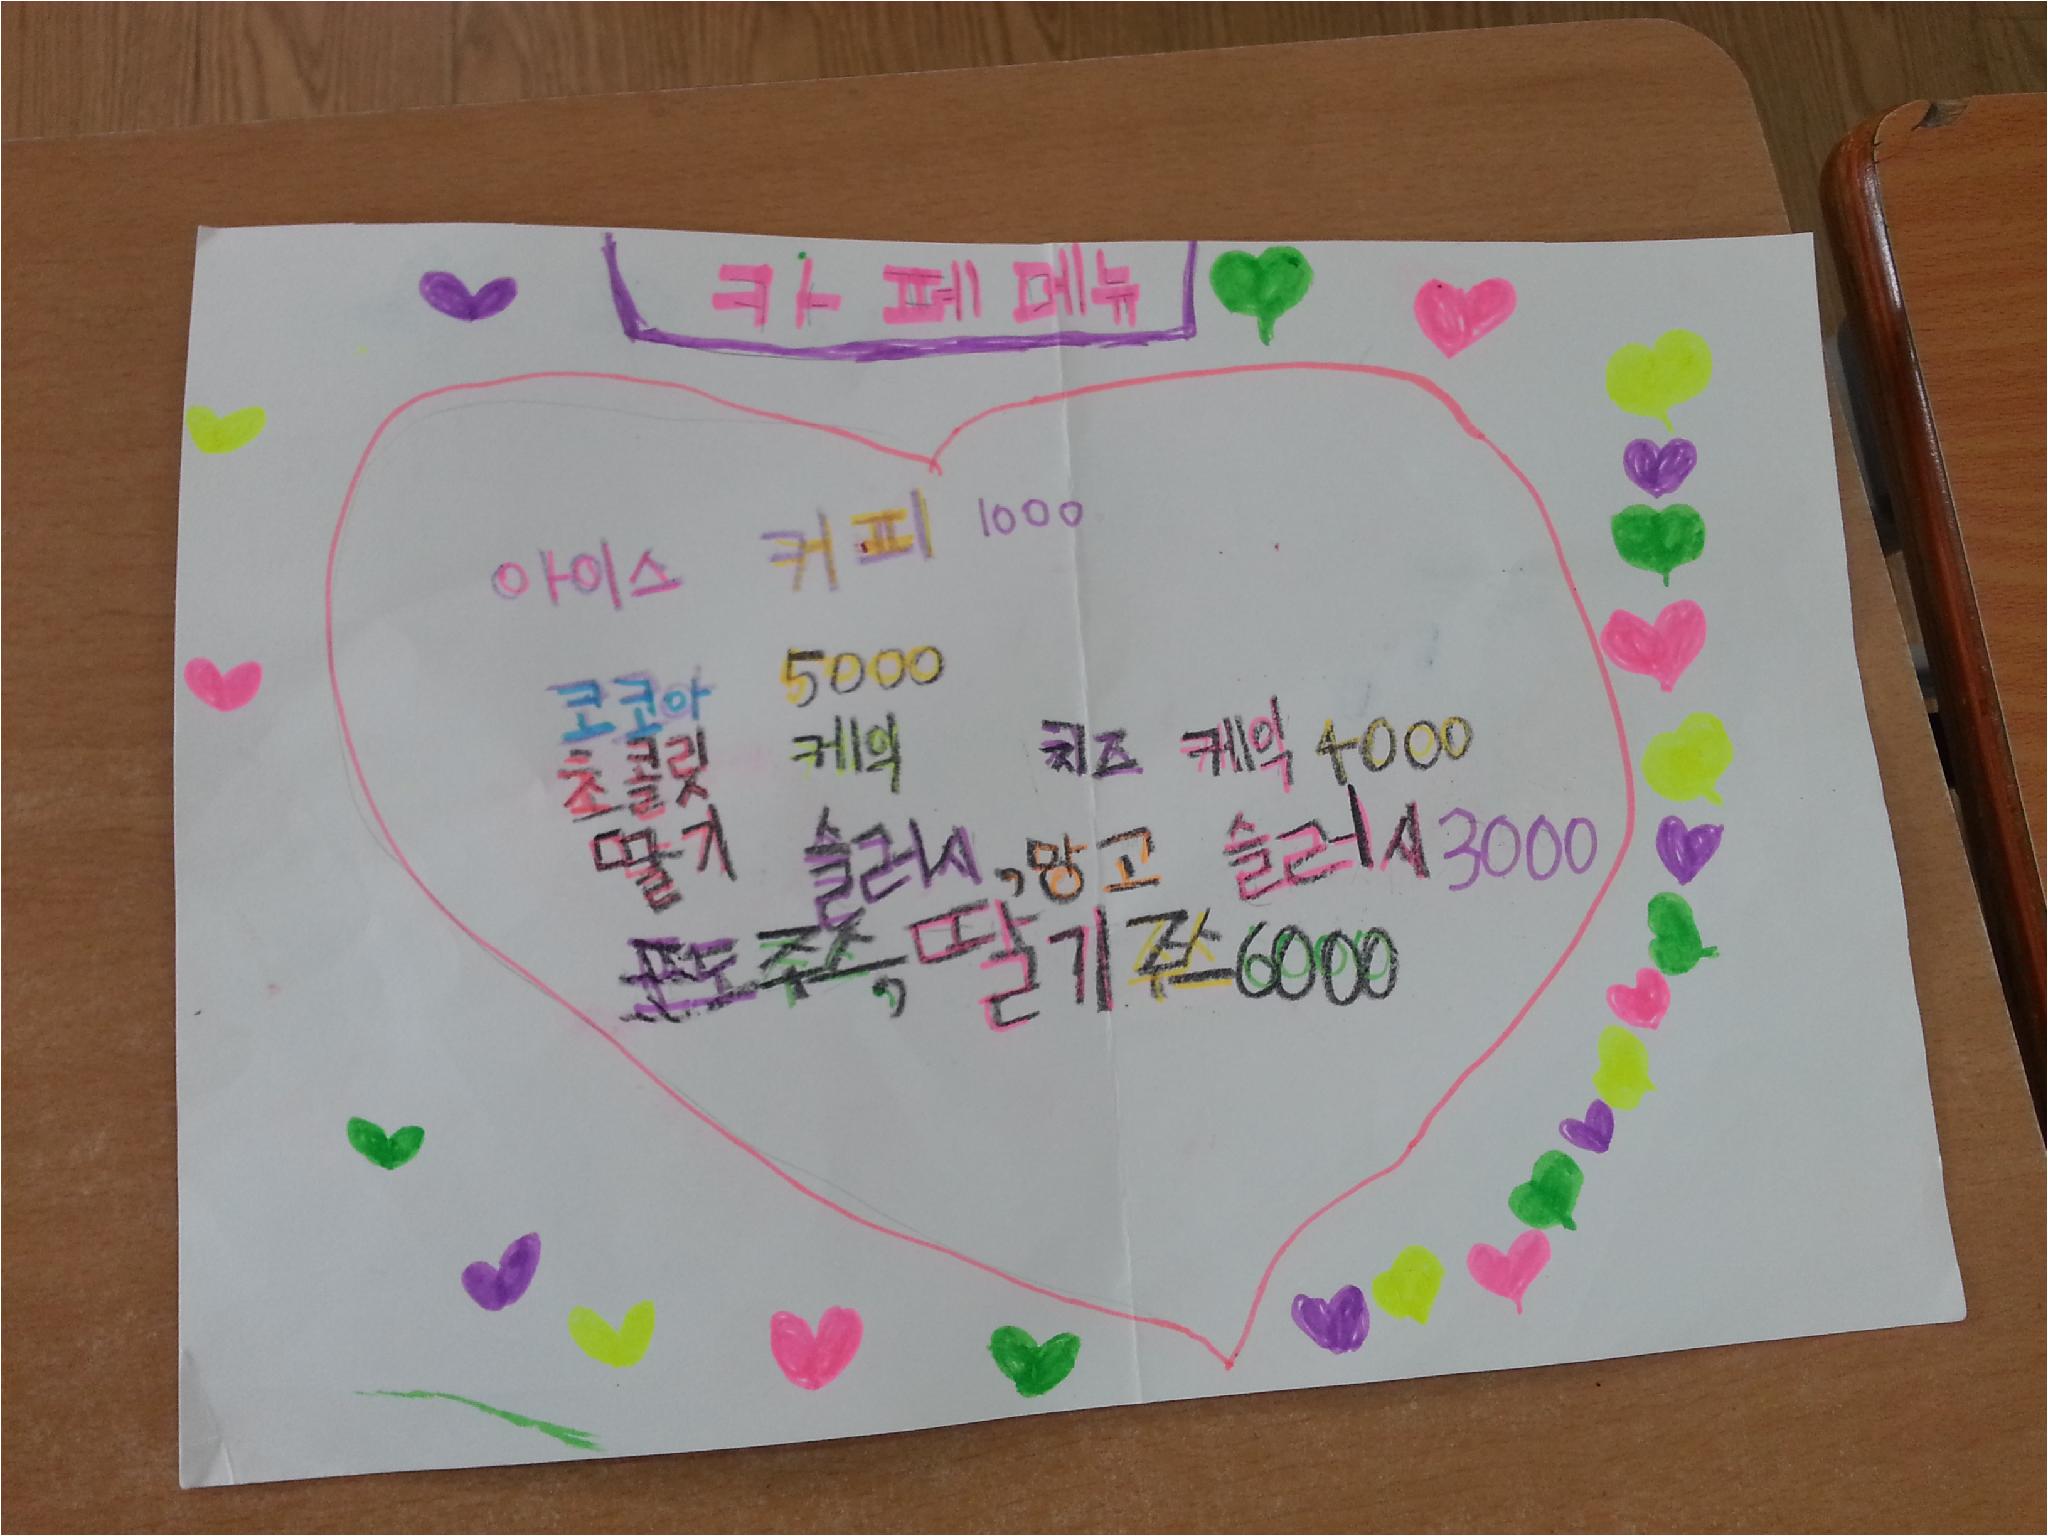 카페메뉴
아이스 커피 1000
코코아 5000
초콜릿 케익 치즈 케익 4000
딸기 슬러시, 망고 슬러시 3000
포도주스, 딸기주스 6000